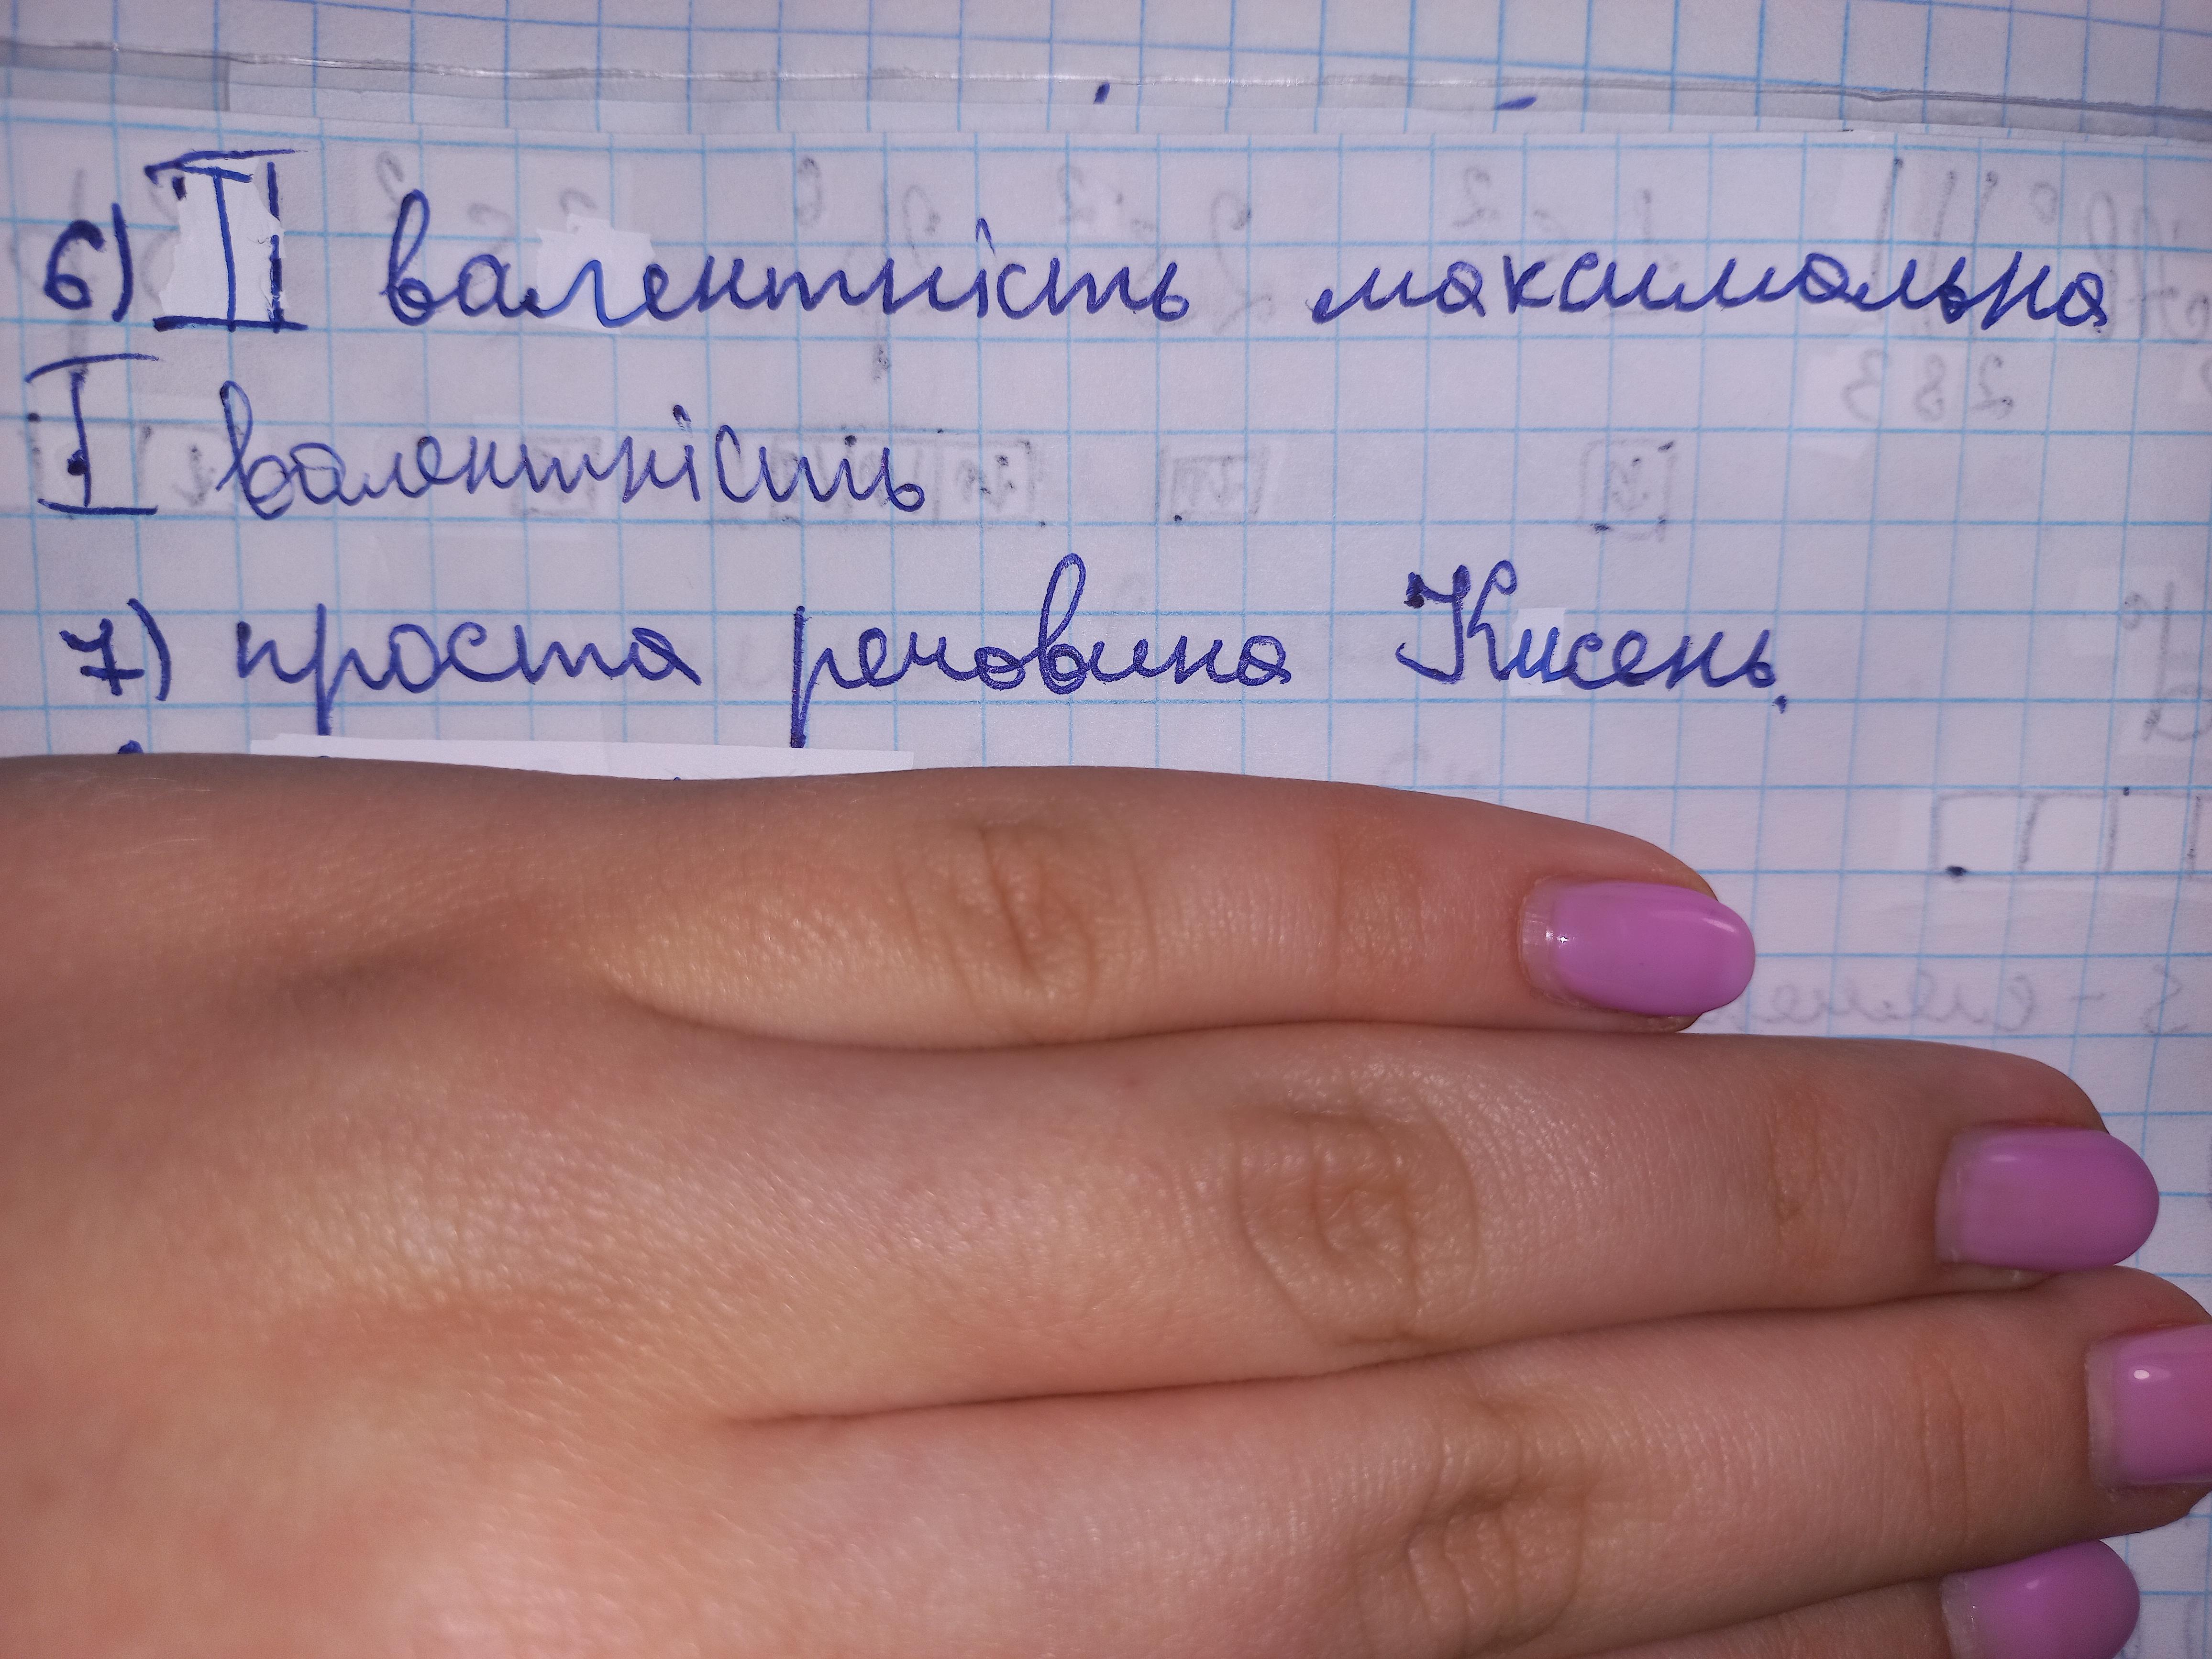 6) II валентність максимальна
I валентність
7) проста речовина Кисень.